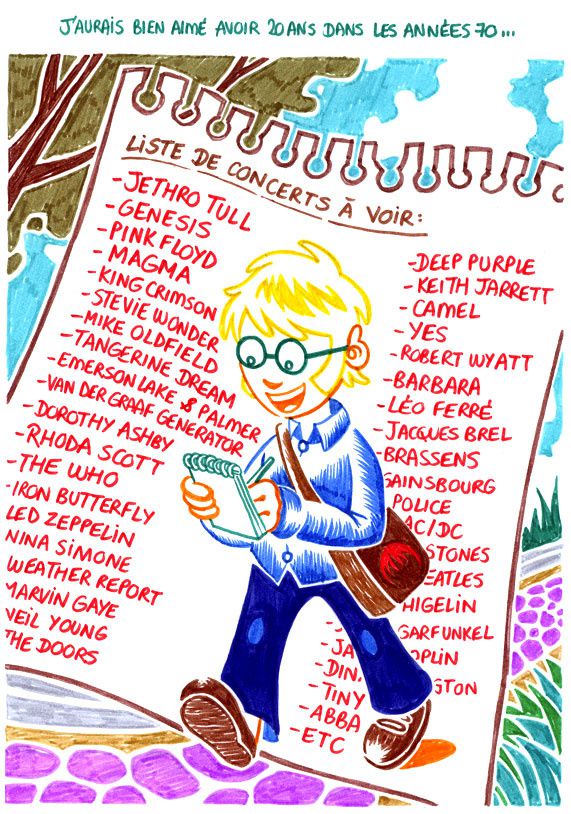 J'AURAIS BIEN AIMÉ AVOIR 20 ANS DANS LES ANNÉES 70...
LISTE DE CONCERTS À VOIR:
-JETHRO TULL
-GENESIS
-PINK FLOYD
-MAGMA
-KING CRIMSON
-STEVIE WONDER
-MIKE OLDFIELD
-TANGERINE DREAM
-EMERSON LAKE & PALMER
-VAN DER GRAAF GENERATOR
-DOROTHY ASHBY
-RHODA SCOTT
-THE WHO
-IRON BUTTERFLY
LED ZEPPELIN
NINA SIMONE
WEATHER REPORT
MARVIN GAYE
NEIL YOUNG
THE DOORS
-DEEP PURPLE
-KEITH JARRETT
-CAMEL
-YES
-ROBERT WYATT
-BARBARA
-LÉO FERRÉ
-JACQUES BREL
-BRASSENS
GAINSBOURG
POLICE
AC/DC
STONES
EATLES
HIGELIN
GARFUNKEL
JA OPLIN
-DIN GTON
-TINY
-ABBA
-ETC